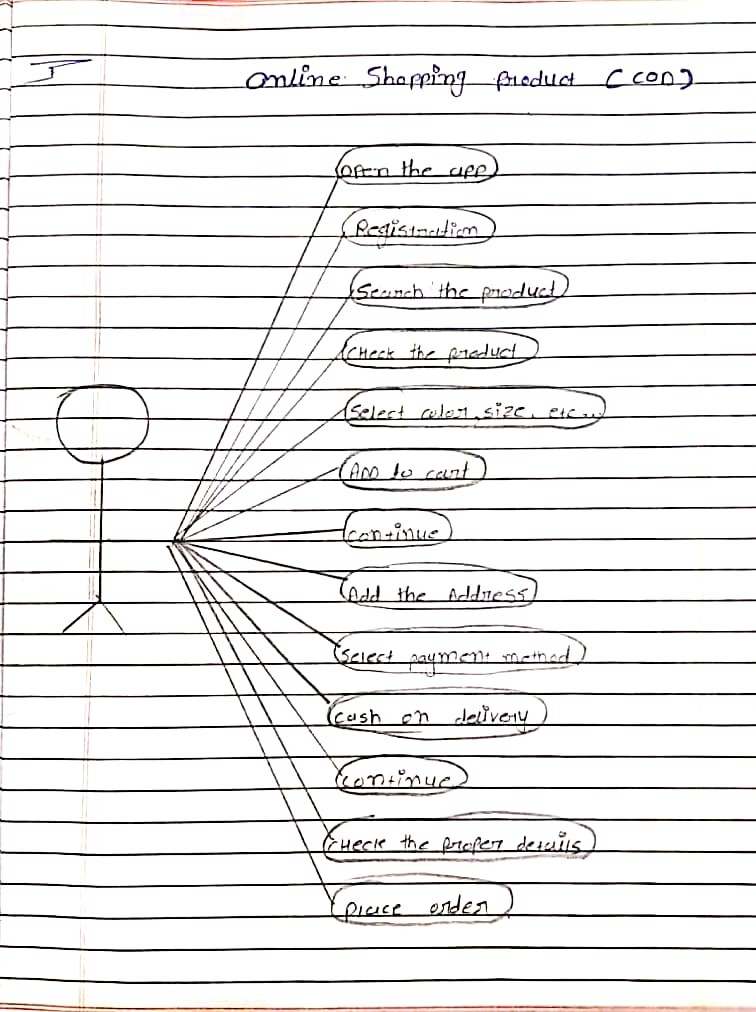 Online Shopping product (COD)
open the app
Registration
Search the product
check the product
Select color, size, etc...
ADD to cart
continue
Add the Address
Select payment method
cash on delivery
continue
check the proper details
place order